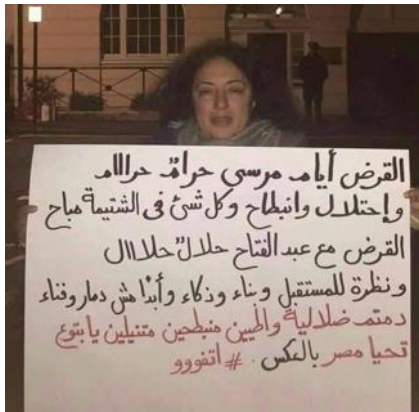 القرض أيام مرسى حرامٌ حراااام
وإحتلال وانبطاح وكل شئ فى الشتيمة مباح
القرض مع عبد الفتاح حلالٌ حلاااال
ونظرة للمستقبل وبناء وذكاء وأبداً مش دمار وفناء
دمتم ضلالية واطيين منبطحين متنيلين يا بتوع
تحيا مصر بالعكس . #اتفووو